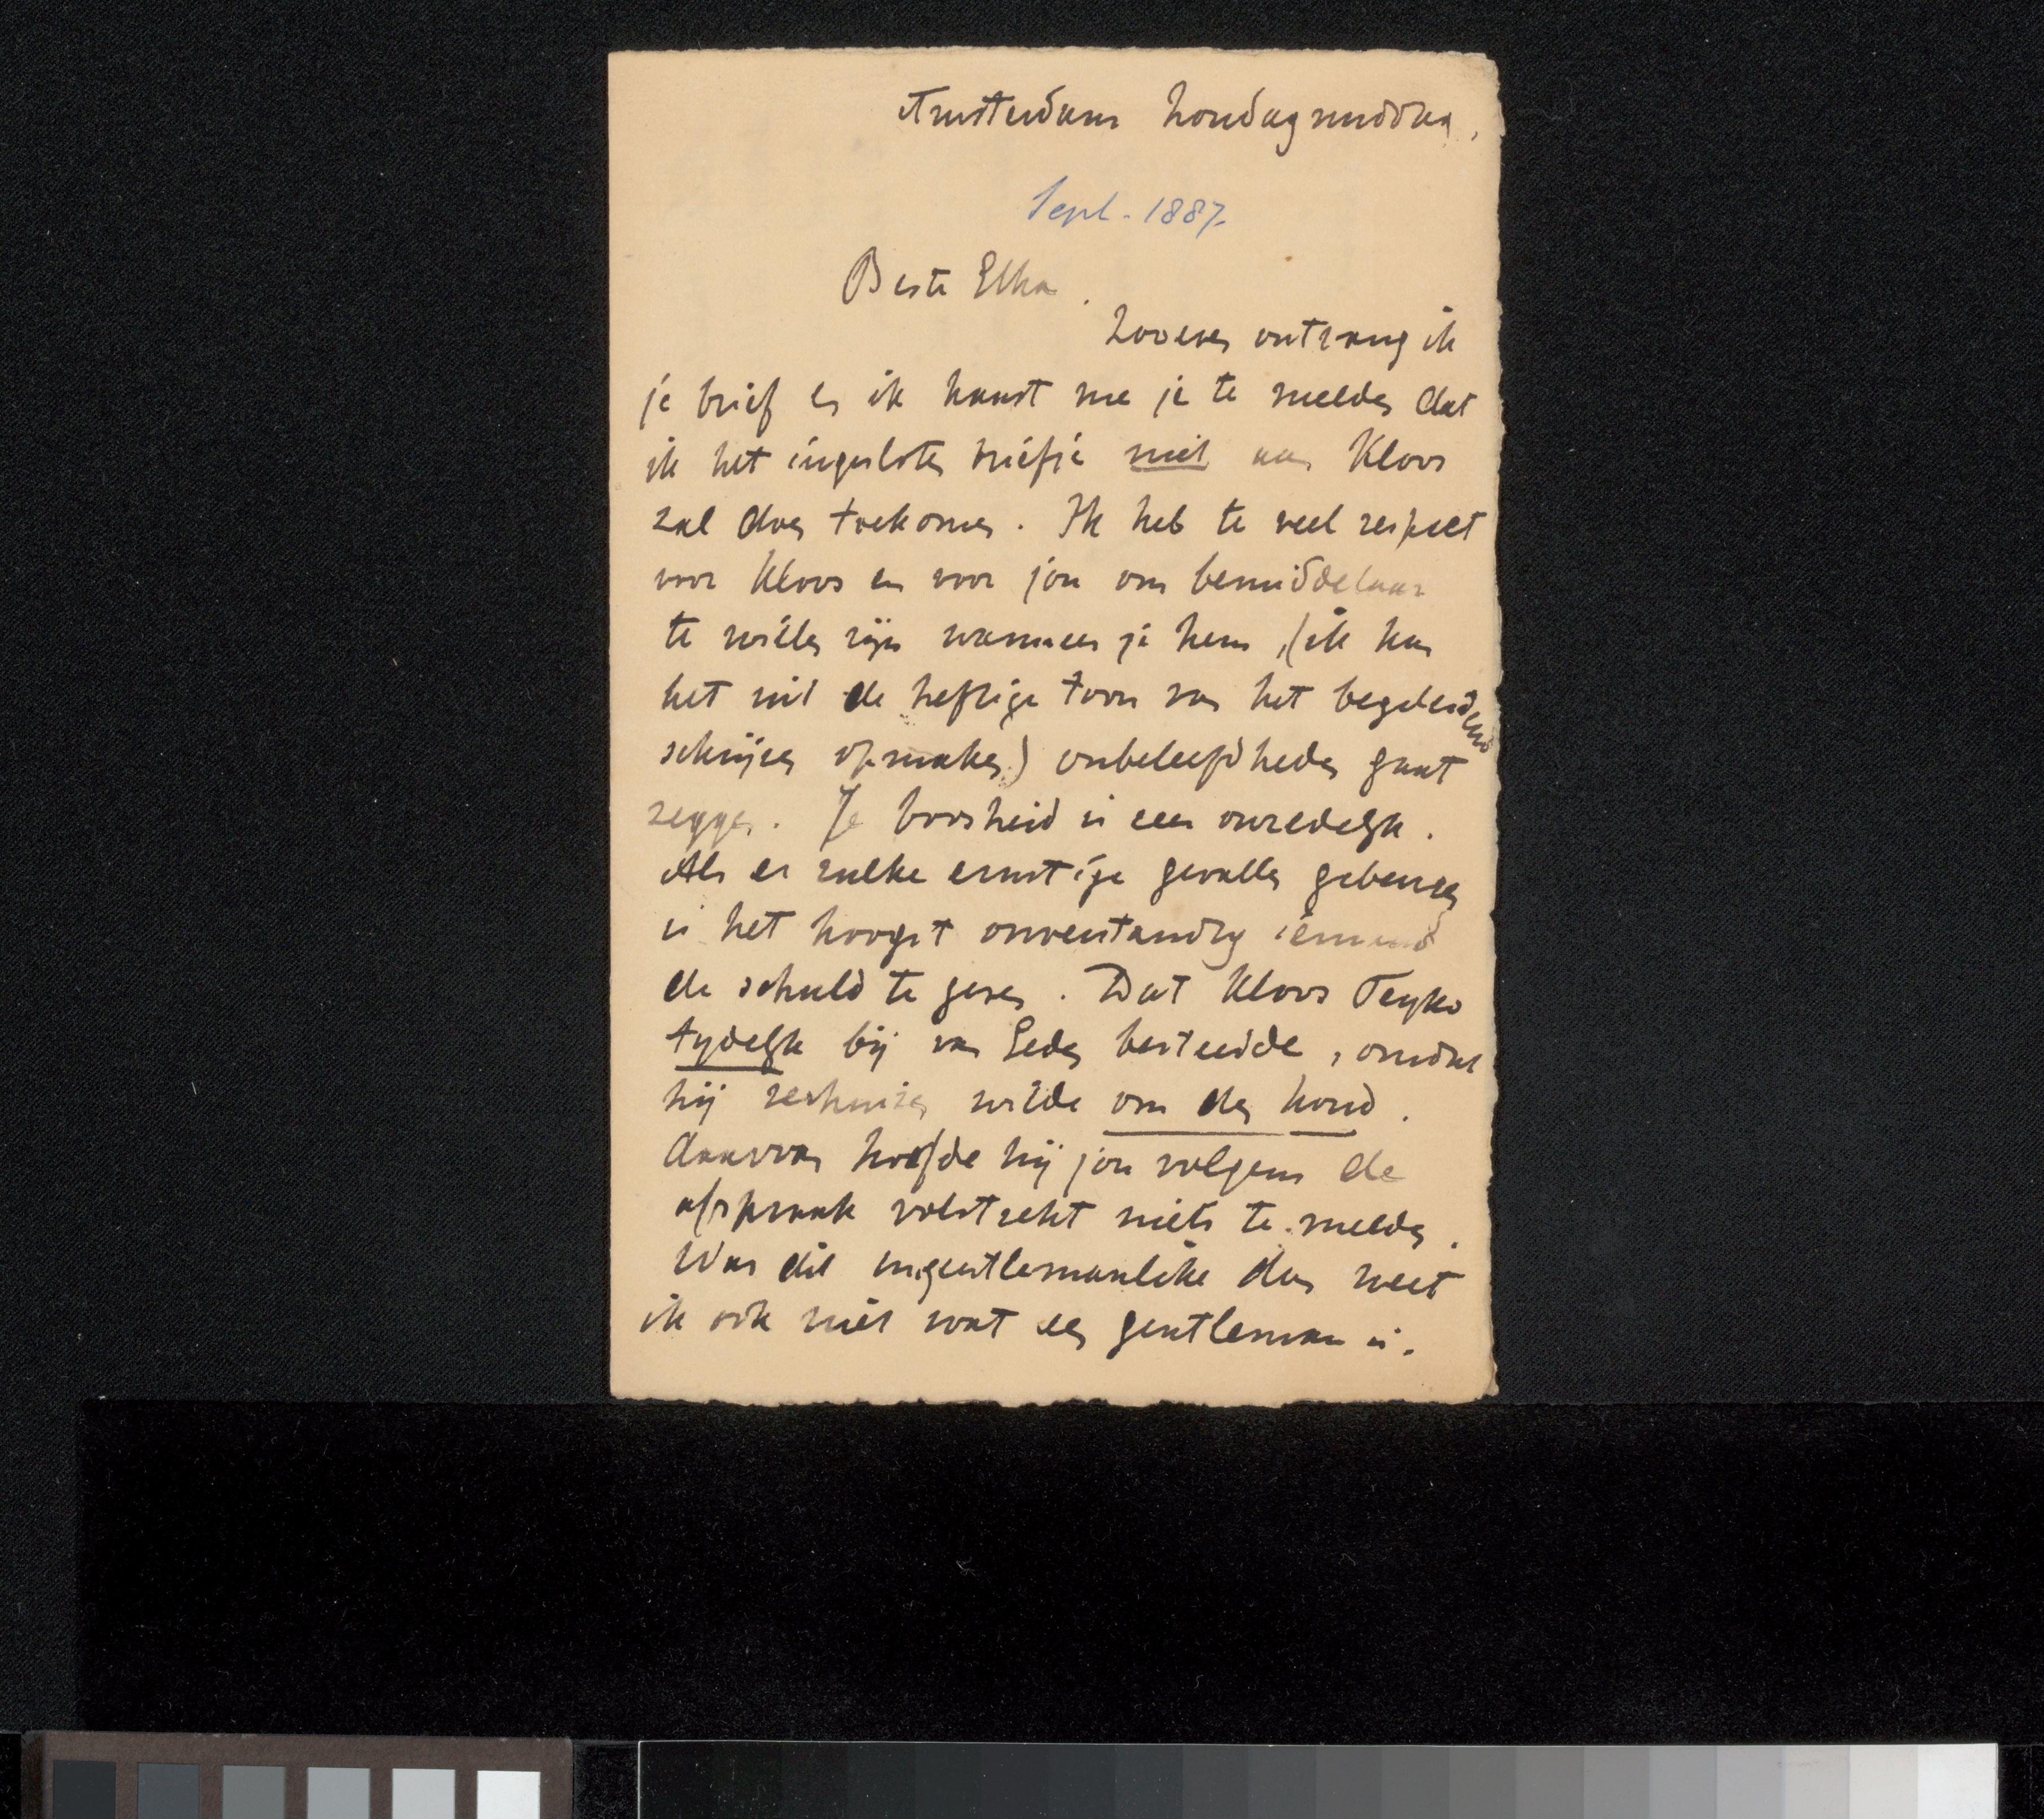 Amsterdam Zondagmiddag.
Sept. 1887.
Beste Etha.
Zooeven ontvang ik
je brief en ik haast me je te melden dat
ik het ingesloten briefje niet aan Kloos
zal doen toekomen. Ik heb te veel respect
voor Kloos en voor jou om bemiddelaar
te willen zijn wanneer je hem, (ik kan
het uit de heftige toon van het begeleidend
schrijven opmaken) onbeleefdheden gaat
zeggen. Je boosheid is zeer onredelijk.
Als er zulke ernstige gevallen gebeuren
is het hoogst onverstandig iemand
de schuld te geven. Dat Kloos
tydelijk bij van Eeden besteedde, omdat
hij verhuizen wilde om den hond.
daarvan hoefde hij jou volgens de
afspraak volstrekt niets te melden.
Was dit ungentlemanlike dan weet
ik ook niet wat een gentleman is.